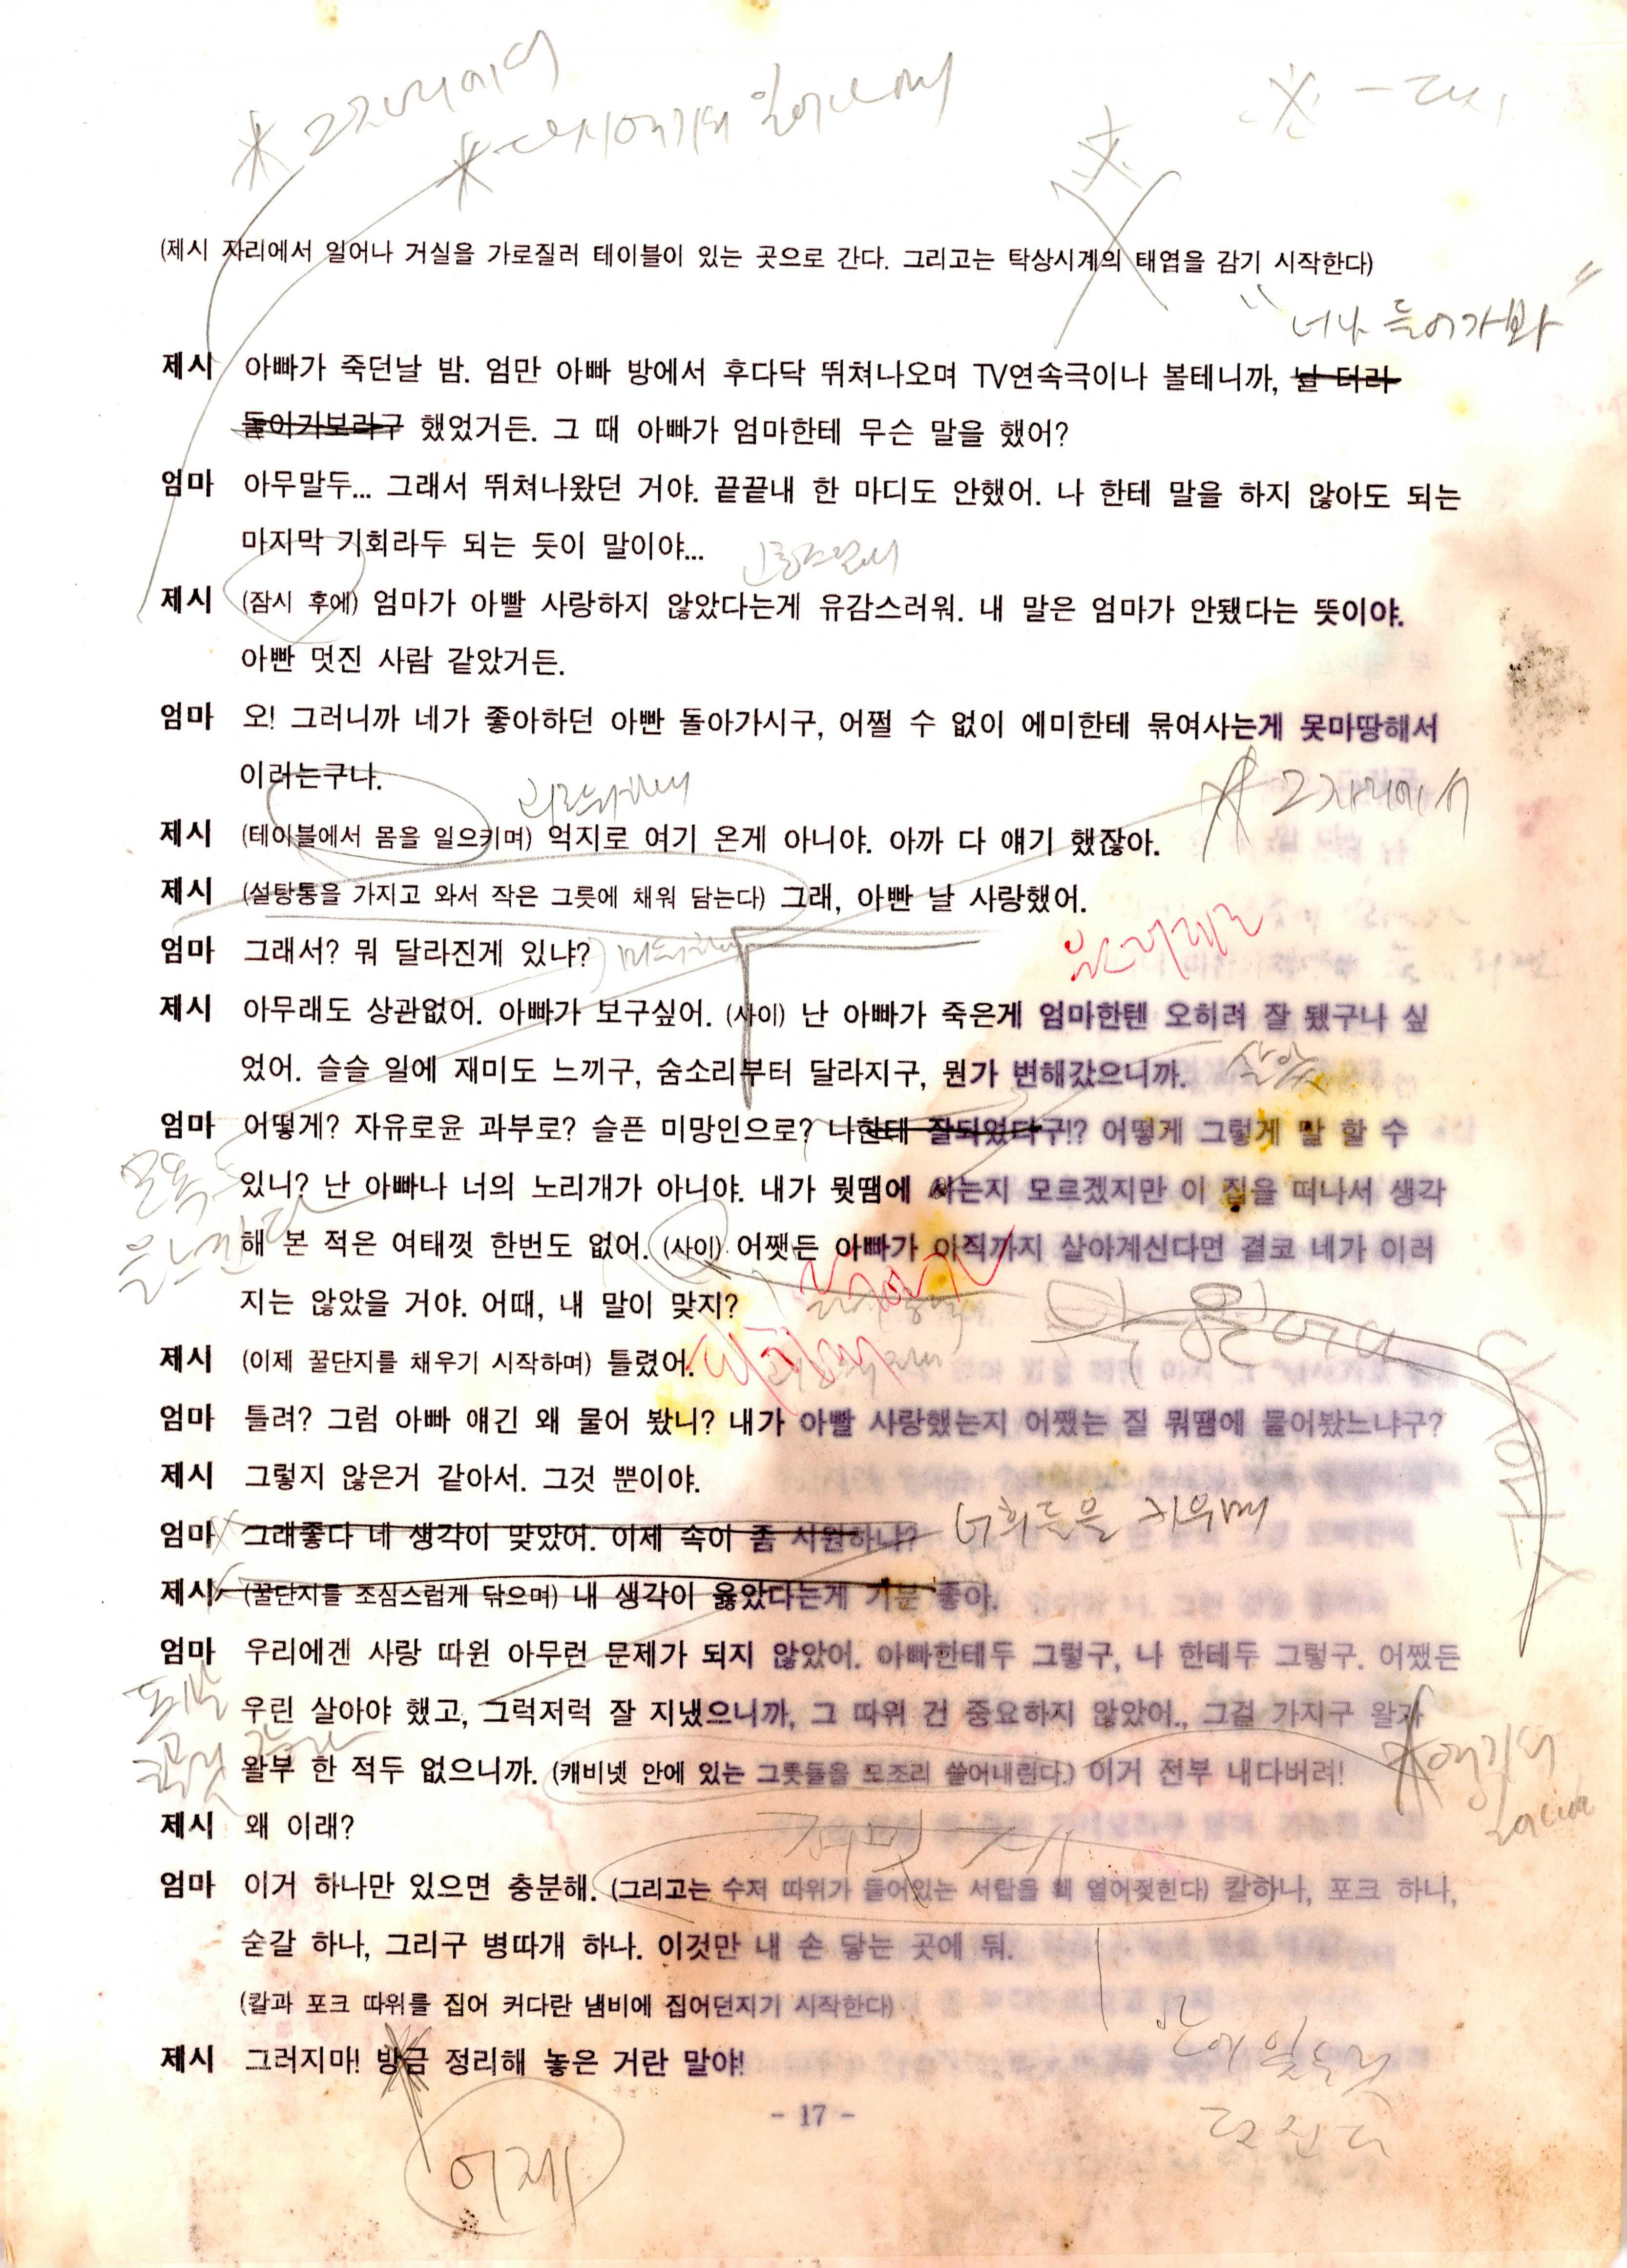 ※ 그자리에서
※ 다시 여기와 일어나며
(제시 자리에서 일어나 거실을 가로질러 테이블이 있는 곳으로 간다. 그리고는 탁상시계의 태엽을 감기 시작한다)
"너나 들어가봐"
제시 아빠가 죽던날 밤. 엄만 아빠 방에서 후다닥 뛰쳐나오며 TV연속극이나 볼테니까, 날 더러
들어가보라구 했었거든. 그 때 아빠가 엄마한테 무슨 말을 했어?
엄마 아무말두... 그래서 뛰쳐나왔던 거야. 끝끝내 한 마디도 안했어. 나 한테 말을 하지 않아도 되는
마지막 기회라두 되는 듯이 말이야...
제시 (잠시 후에) 엄마가 아빨 사랑하지 않았다는게 유감스러워. 내 말은 엄마가 안됐다는 뜻이야.
아빤 멋진 사람 같았거든.
엄마 오! 그러니까 네가 좋아하던 아빤 돌아가시구, 어쩔 수 없이 에미한테 묶여사는게 못마땅해서
이러는구나.
※ 그 자리에서
제시 (테이블에서 몸을 일으키며) 억지로 여기 온게 아니야. 아까 다 얘기 했잖아.
제시 (설탕통을 가지고 와서 작은 그릇에 채워 담는다) 그래, 아빤 날 사랑했어.
엄마 그래서? 뭐 달라진게 있냐?
제시 아무래도 상관없어. 아빠가 보구싶어. (사이) 난 아빠가 죽은게 엄마한텐 오히려 잘 됐구나 싶
었어. 슬슬 일에 재미도 느끼구, 숨소리부터 달라지구, 뭔가 변해갔으니까.
엄마 어떻게? 자유로윤 과부로? 슬픈 미망인으로? 나한테 잘되었다구!? 어떻게 그렇게 말 할 수
있니? 난 아빠나 너의 노리개가 아니야. 내가 뭣땜에 사는지 모르겠지만 이 집을 떠나서 생각
모욕을 느낀다
해 본 적은 여태껏 한번도 없어. (사이) 어쨋든 아빠가 아직까지 살아계신다면 결코 네가 이러
지는 않았을 거야. 어때, 내 말이 맞지?
제시 (이제 꿀단지를 채우기 시작하며) 틀렸어.
엄마 틀려? 그럼 아빠 얘긴 왜 물어 봤니? 내가 아빨 사랑했는지 어쨌는 질 뭐땜에 물어봤느냐구?
제시 그렇지 않은거 같아서. 그것 뿐이야.
엄마 그래좋다 네 생각이 맞았어. 이제 속이 좀 시원하냐?
너희들을 키우며
제시 (꿀단지를 조심스럽게 닦으며) 내 생각이 옳았다는게 기분 좋아.
엄마 우리에겐 사랑 따윈 아무런 문제가 되지 않았어. 아빠한테두 그렇구, 나 한테두 그렇구. 어쨌든
우린 살아야 했고, 그럭저럭 잘 지냈으니까, 그 따위 건 중요하지 않았어., 그걸 가지구 왈가
왈부 한 적두 없으니까. (캐비넷 안에 있는 그릇들을 모조리 쓸어내린다.) 이거 전부 내다버려!
제시 왜 이래?
엄마 이거 하나만 있으면 충분해. (그리고는 수저 따위가 들어있는 서랍을 홱 열어젖힌다) 칼하나, 포크 하나,
숟갈 하나, 그리구 병따개 하나. 이것만 내 손 닿는 곳에 둬.
(칼과 포크 따위를 집어 커다란 냄비에 집어던지기 시작한다)
제시 그러지마! 방금 정리해 놓은 거란 말야!
- 17 -
어제